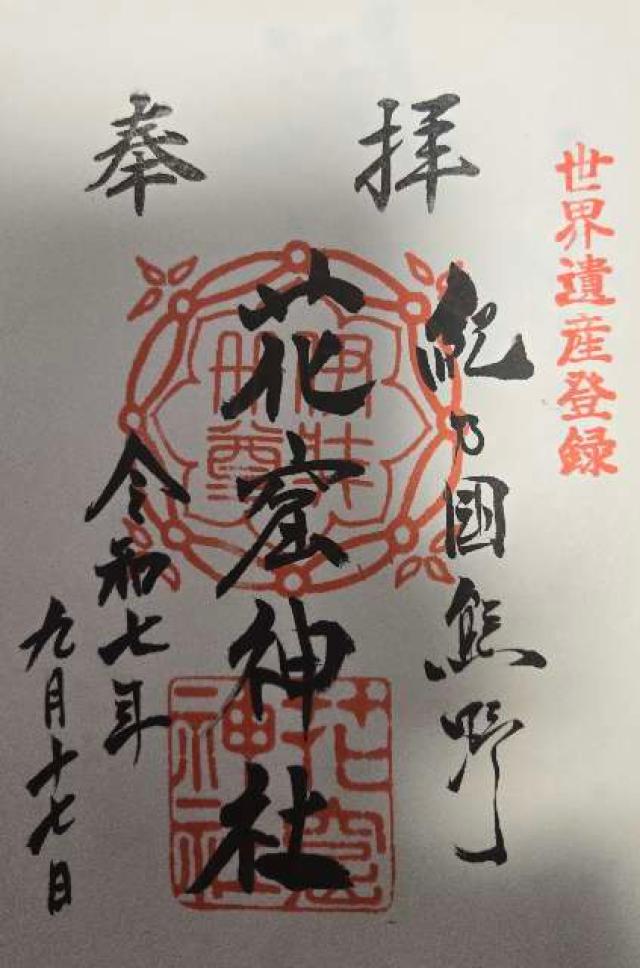 世界遺産登録
奉拝
紀乃國熊野
花窟神社
令和七年
九月十七日
伊弉冊尊
花窟神社